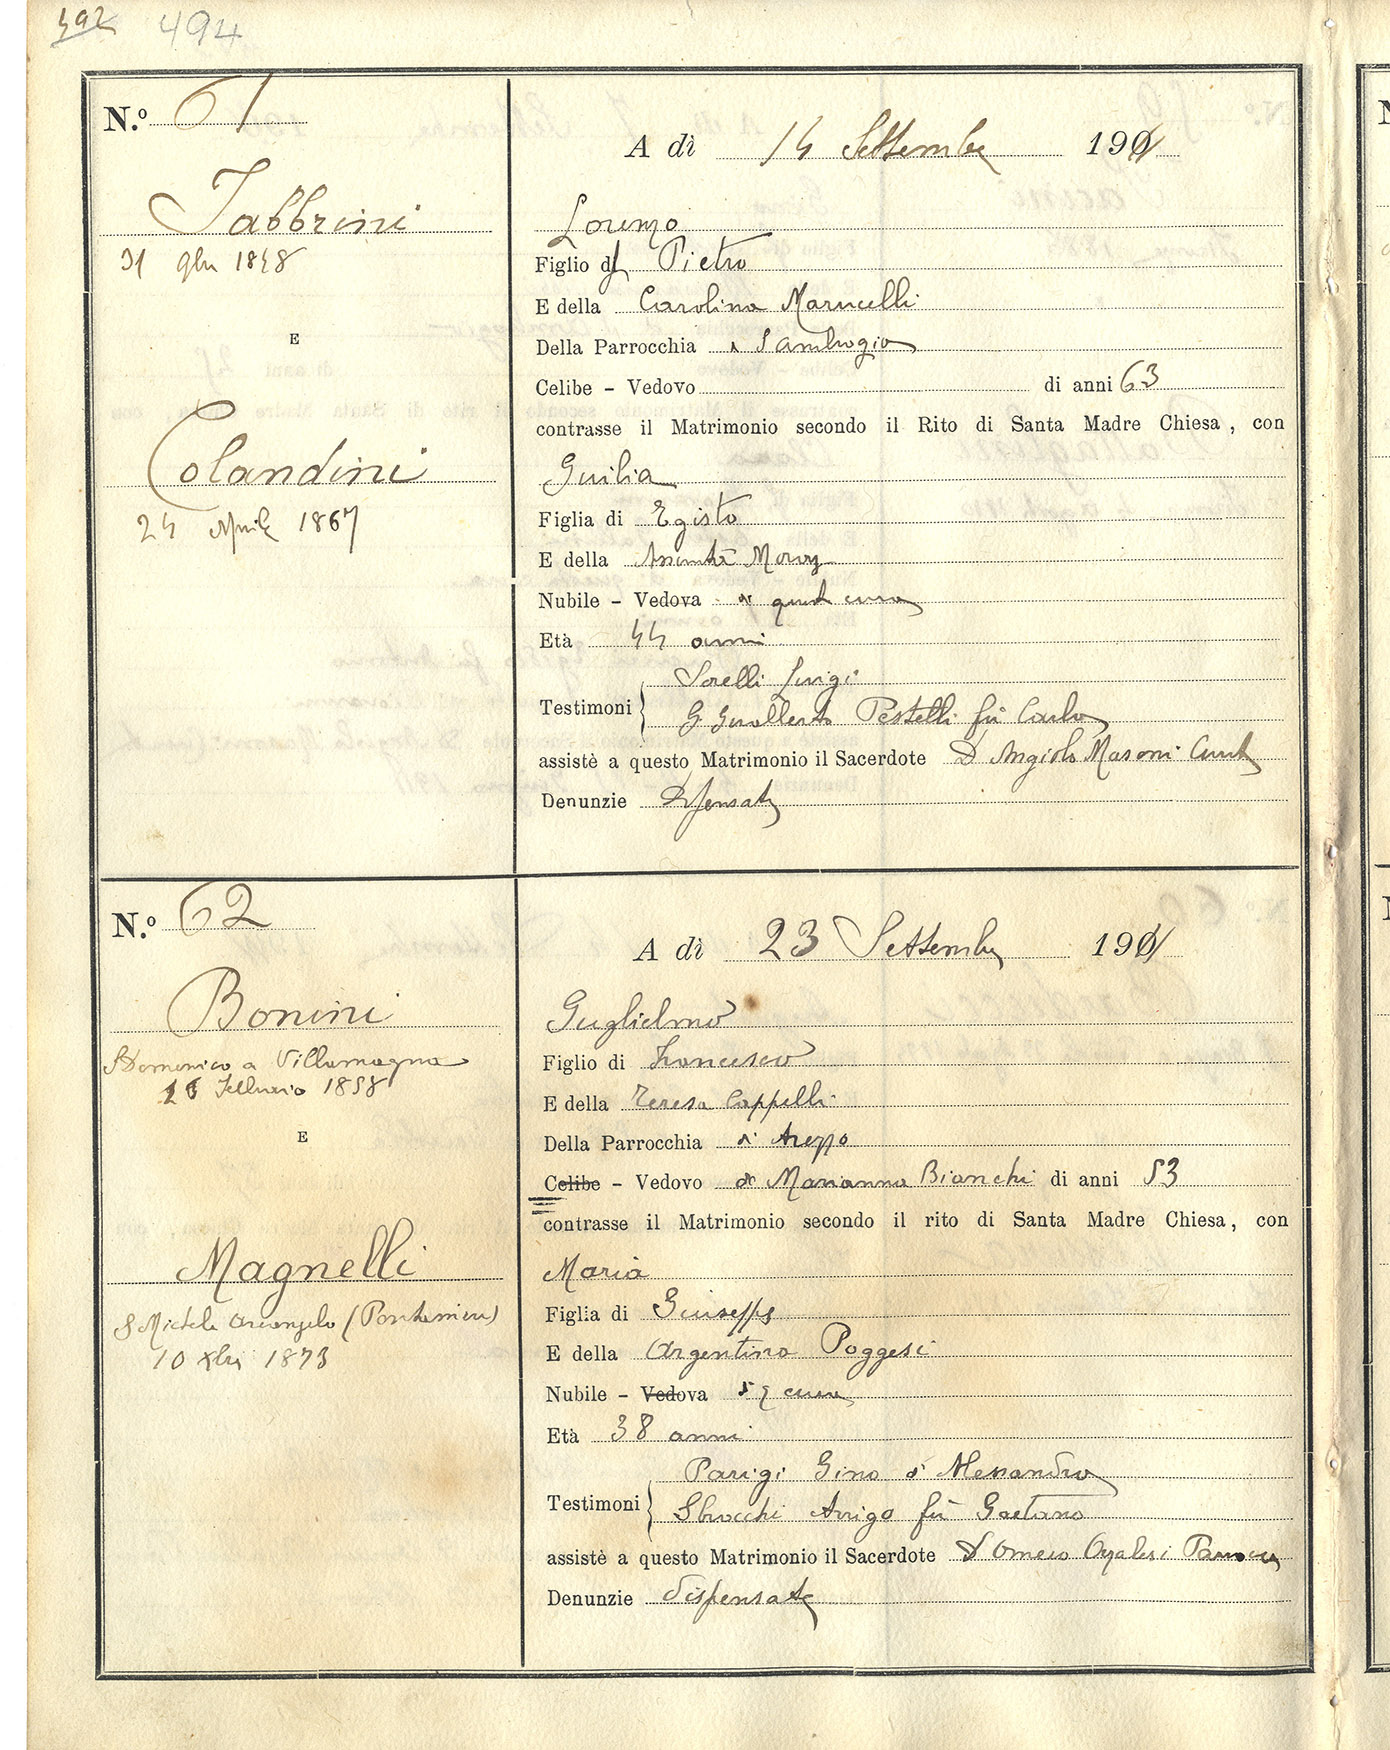 494
N.º 61
A dì 14 Settembre 1911
Fabbrini
31 9bre 1848
E
Colandini
24 Aprile 1867
Lorenzo
Figlio di Pietro
E della Carolina Marucelli
Della Parrocchia di S Ambrogio
Celibe - Vedovo di anni 63
contrasse il Matrimonio secondo il Rito di Santa Madre Chiesa, con
Giulia
Figlia di Egisto
E della Assunta
Nubile - Vedova di questa cura
Età 44 anni
Sorelli Luigi
Testimoni
G Gualberto Pestelli fu Carlo
assistè a questo Matrimonio il Sacerdote D Angiolo Masoni Curato
Denunzie Dispensate
N.º 62
A dì 23 Settembre 1911
Bonini
S Domenico a Villamagna
26 Febbraio 1858
E
Magnelli
S Michele Arcangelo (Pontanico)
10 Xbre 1873
Guglielmo
Figlio di Francesco
E della Teresa Cappelli
Della Parrocchia di Arezzo
Celibe - Vedovo di Marianna Bianchi di anni 53
contrasse il Matrimonio secondo il rito di Santa Madre Chiesa, con
Maria
Figlia di Giuseppe
E della Argentina Poggesi
Nubile - Vedova di q cura
Età 38 anni
Parigi Gino di Alessandro
Testimoni
Sbrocchi Arrigo fu Gaetano
assistè a questo Matrimonio il Sacerdote D Omero Ozalesi Parroco
Denunzie dispensate